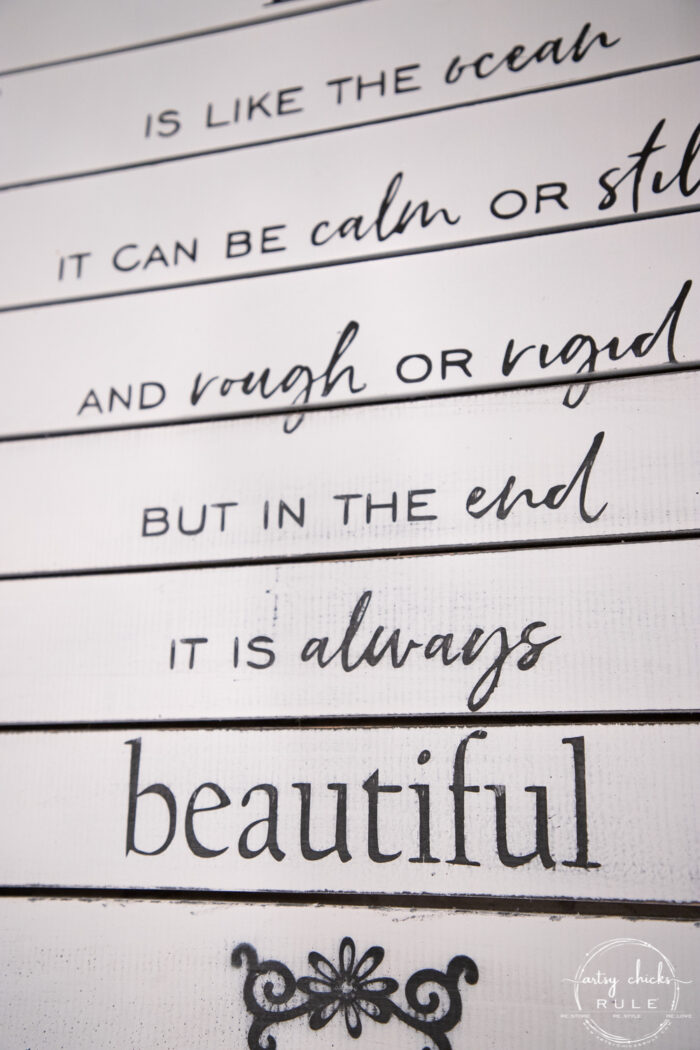 IS LIKE THE ocean
IT CAN BE calm OR still
AND rough OR rigid
BUT IN THE end
IT IS always
beautiful
artsy chicks
RULE
RE.STORE RE.STYLE RE.LOVE